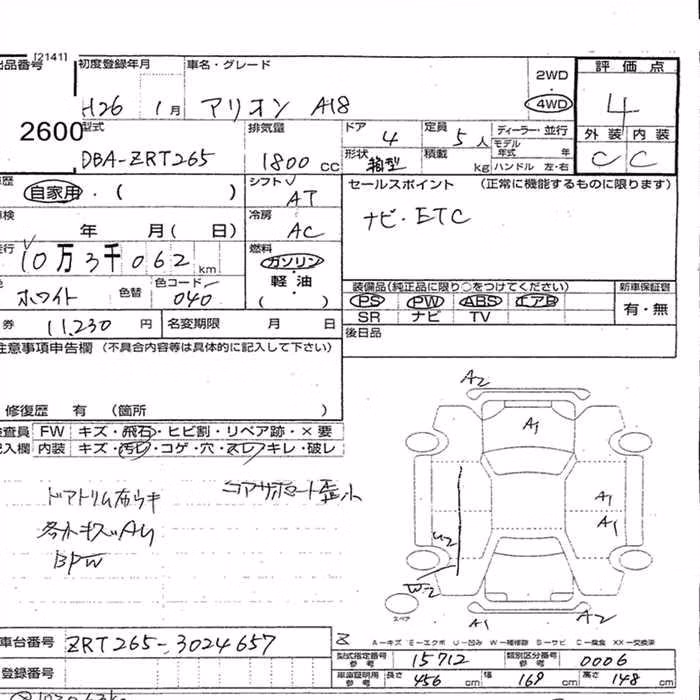 [2141]
出品番号 初度登録年月 車名・グレード 2WD 評価点
H26 1月 アリオン A18 4WD 4
2600 型式 排気量 ドア 4 定員 5人 ディーラー・並行 外装 内装
DBA-ZRT265 1800cc 形状 箱型 積載 kg モデル年式 年 ハンドル 左・右 C C
歴 自家用・( ) シフト AT セールスポイント (正常に機能するものに限ります)
車検 年 月( 日) 冷房 AC ナビ・ETC
走行 10万3千062km 燃料 ガソリン
軽油
( )
色 ホワイト 色替 色コード 040 装備品(純正品に限り○をつけてください) 新車保証書
PS PW ABS エアB 有・無
SR ナビ TV
券 11,230円 名変期限 月 日 後日品
注意事項申告欄 (不具合内容等は具体的に記入して下さい)
修復歴 有 (箇所 )
検査員 FW キズ・飛石・ヒビ割・リペア跡・×要
記入欄 内装 キズ・汚レ・コゲ・穴・スレ・キレ・破レ
A2
A1
A1
A1
U2
W2
スペア
A1
A2
BPW
車台番号 ZRT265-3024657
A-キズ E-エクボ U-凹み W-補修跡 S-サビ C-腐食 XX-交換済
型式指定番号 参考 15712 類別区分番号 参考 0006
登録番号 車庫証明用 参考 長さ 456cm 幅 169cm 高さ 148cm